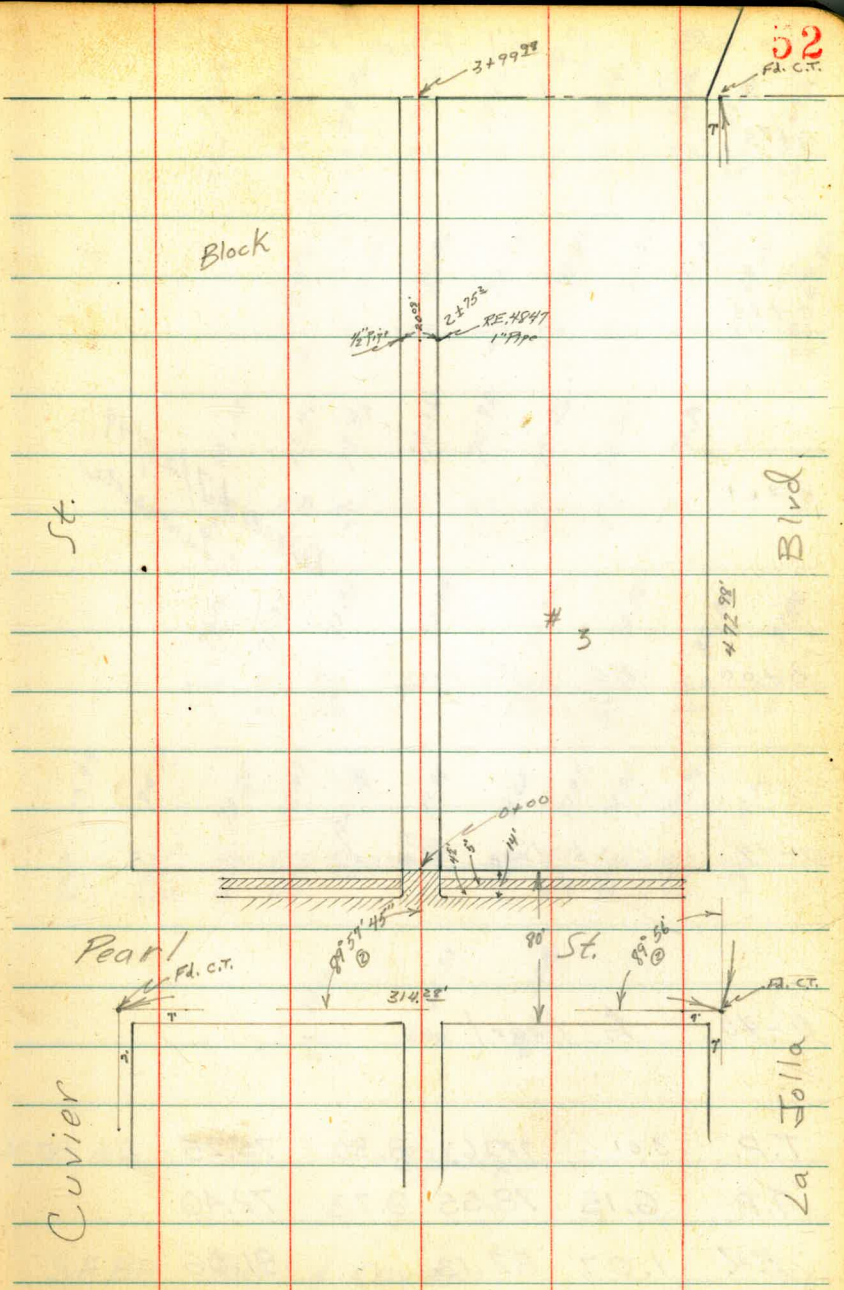 52
3+99.98
Fd. C.T.
7
Block
1/2" Pipe
20.02'
2+75.2
R.E. 4847
1" Pipe
St.
Blvd.
# 3
472.98'
0+00
5'
14'
Pearl
St.
89° 57' 45"
②
80'
89° 56'
②
Fd. C.T.
314.28'
Fd. C.T.
7
7
7
Cuvier
La Jolla